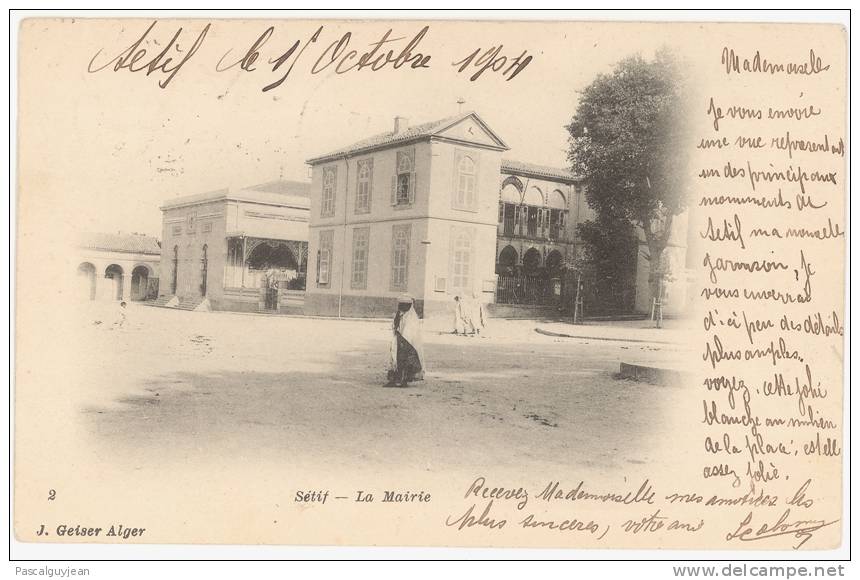 Sétif le 15 Octobre 1904
Mademoiselle
Je vous envoie
une vue représentant
un des principaux
monuments de
Sétif ma nouvelle
garnison, Je
vous enverrai
d'ici peu des détails
plus amples.
voyez. cette jolie
blanche au milieu
de la place, est elle
assez jolie.
Recevez Mademoiselle mes amitiés les
plus sincères, votre ami
2
Sétif — La Mairie
J. Geiser Alger
Pascalguyjean
www.delcampe.net